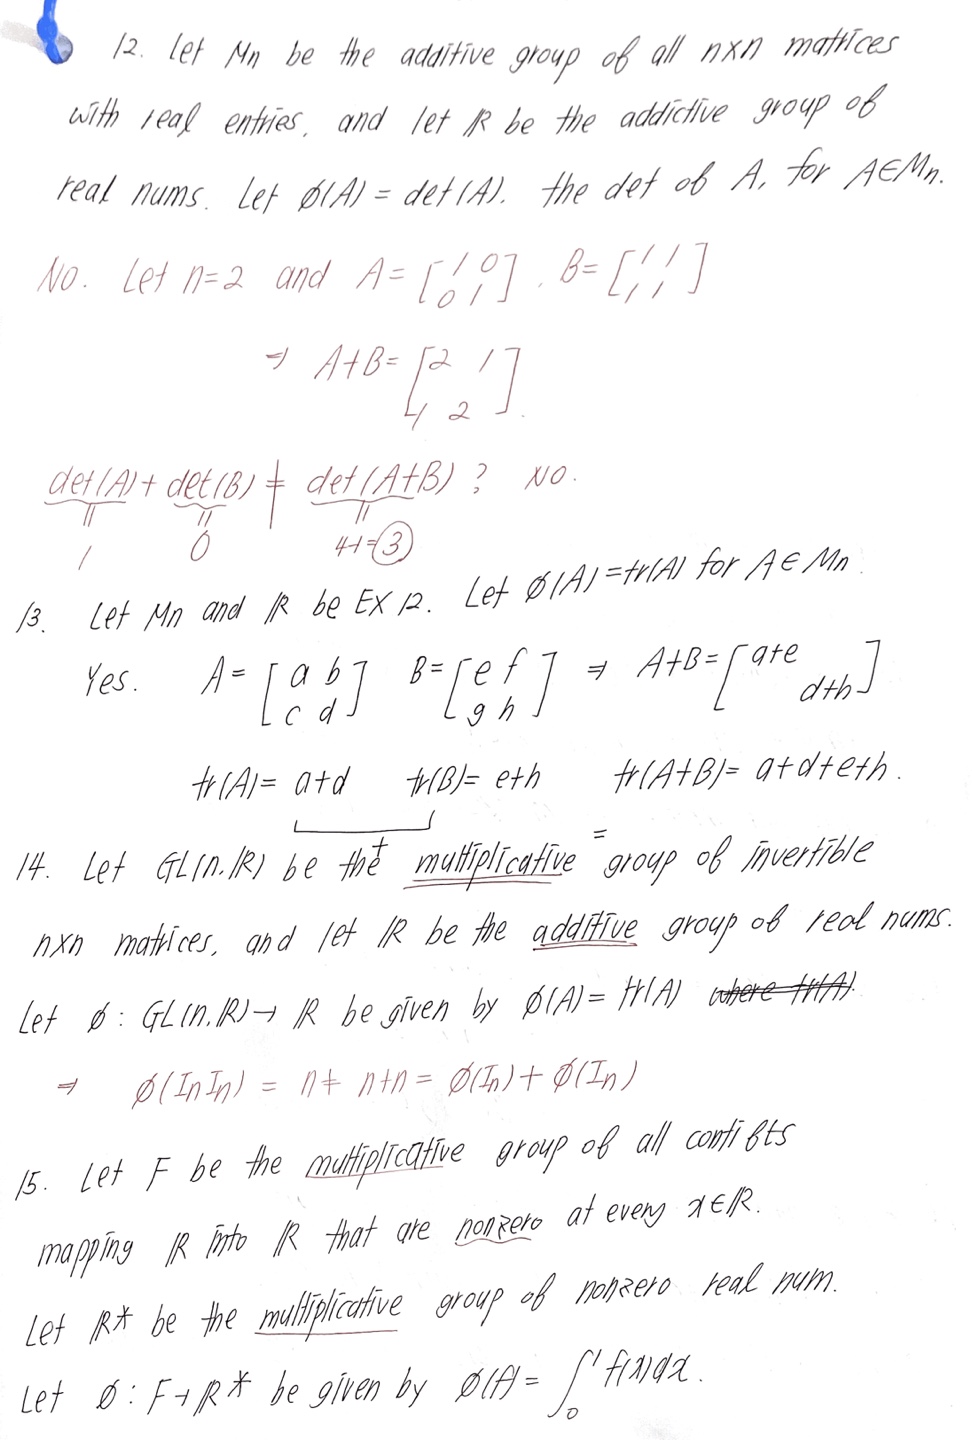 12. Let Mn be the additive group of all n×n matrices
with real entries, and let ℝ be the addictive group of
real nums. Let ø(A) = det(A). the det of A, for A∈Mn.
No. Let n=2 and A= [1 0 0 1], B= [1 1 1 1]
⇒ A+B= [2 1 1 2].
det(A) + det(B) ≠ det(A+B)? NO.
" " "
1 0 4-1=3
13. Let Mn and ℝ be EX 12. Let ø(A)=tr(A) for A∈Mn.
Yes. A= [a b c d] B= [e f g h] ⇒ A+B= [a+e d+h]
tr(A)= a+d tr(B)= e+h tr(A+B)= a+d+e+h.
+ =
14. Let GL(n.ℝ) be the multiplicative group of invertible
n×n matrices, and let ℝ be the additive group of real nums.
Let ø : GL(n.ℝ)→ ℝ be given by ø(A)= tr(A) where tr(A).
⇒ ø(InIn) = n≠ n+n = ø(In)+ ø(In)
15. Let F be the multiplicative group of all conti fts
mapping ℝ into ℝ that are nonzero at every x∈ℝ.
Let ℝ* be the multiplicative group of nonzero real num.
Let ø : F→ℝ* be given by ø(f)= ∫₀¹ f(x)dx.